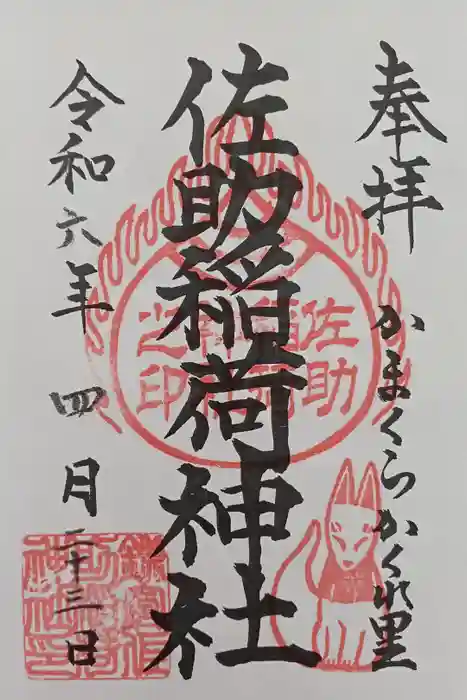 奉拝
かまくらかくれ里
佐助稲荷神社
佐助稲荷神社之印
令和六年四月二十三日